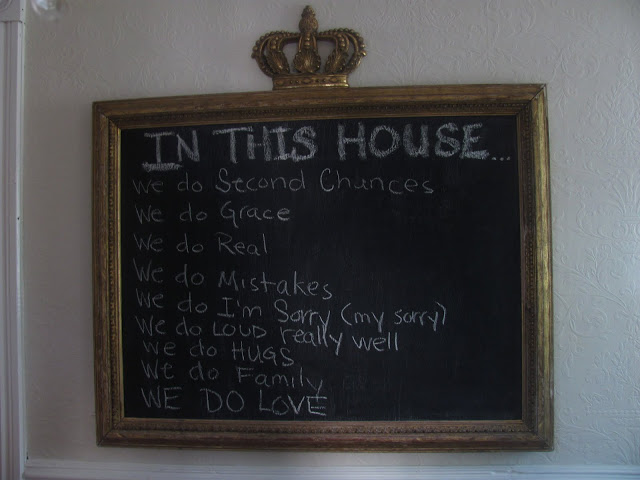 IN THIS HOUSE...
We do Second Chances
We do Grace
We do Real
We do Mistakes
We do I'm Sorry (my sorry)
We do LOUD really well
We do HUGS
We do Family
WE DO LOVE